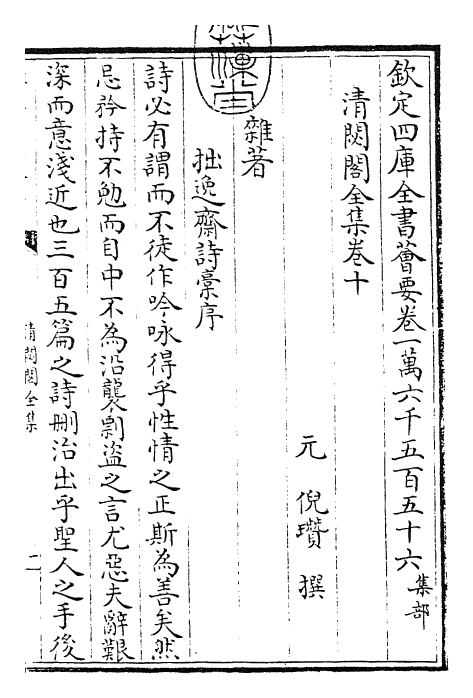 欽定四庫全書薈要卷一萬六千五百五十六 集部
清閟閣全集卷十
元 倪瓚 撰
雜著
拙逸齋詩槀序
詩必有謂而不徒作吟咏得乎性情之正斯為善矣然
忌矜持不勉而自中不為沿襲剽盜之言尤惡夫辭艱
深而意淺近也三百五篇之詩刪治出乎聖人之手後
清閟閣全集